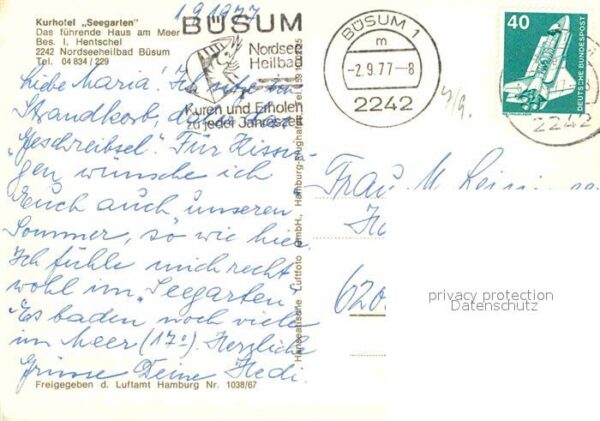 Kurhotel „Seegarten"
Das führende Haus am Meer
Bes. I. Hentschel
2242 Nordseeheilbad Büsum
Tel. 04 834 / 229
1.9.1977
BÜSUM
Nordsee
Heilbad
Kuren und Erholen
zu jeder Jahreszeit
BÜSUM 1
m
-2.9.77-8
2242
40
DEUTSCHE BUNDESPOST
2242
Liebe Maria! Ich sitze im
Strandkorb, daher das
„Geschreibsel". Für Kissin-
gen wünsche ich
Euch auch „unseren
Sommer, so wie hier.
Ich fühle mich recht
wohl im „Seegarten"
Es baden noch viele
im Meer (17°) Herzliche
Grüsse Deine Hedi.
Frau M.
620
Hanseatische Luftfoto GmbH., Hamburg-
Freigegeben d. Luftamt Hamburg Nr. 1038/67
privacy protection
Datenschutz